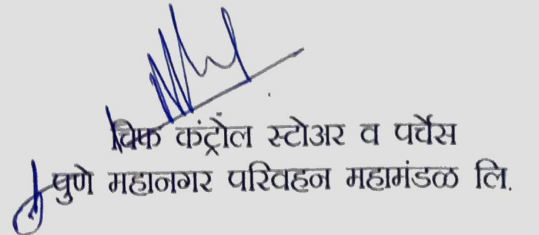 चिफ कंट्रोल स्टोअर व पर्चेस
पुणे महानगर परिवहन महामंडळ लि.